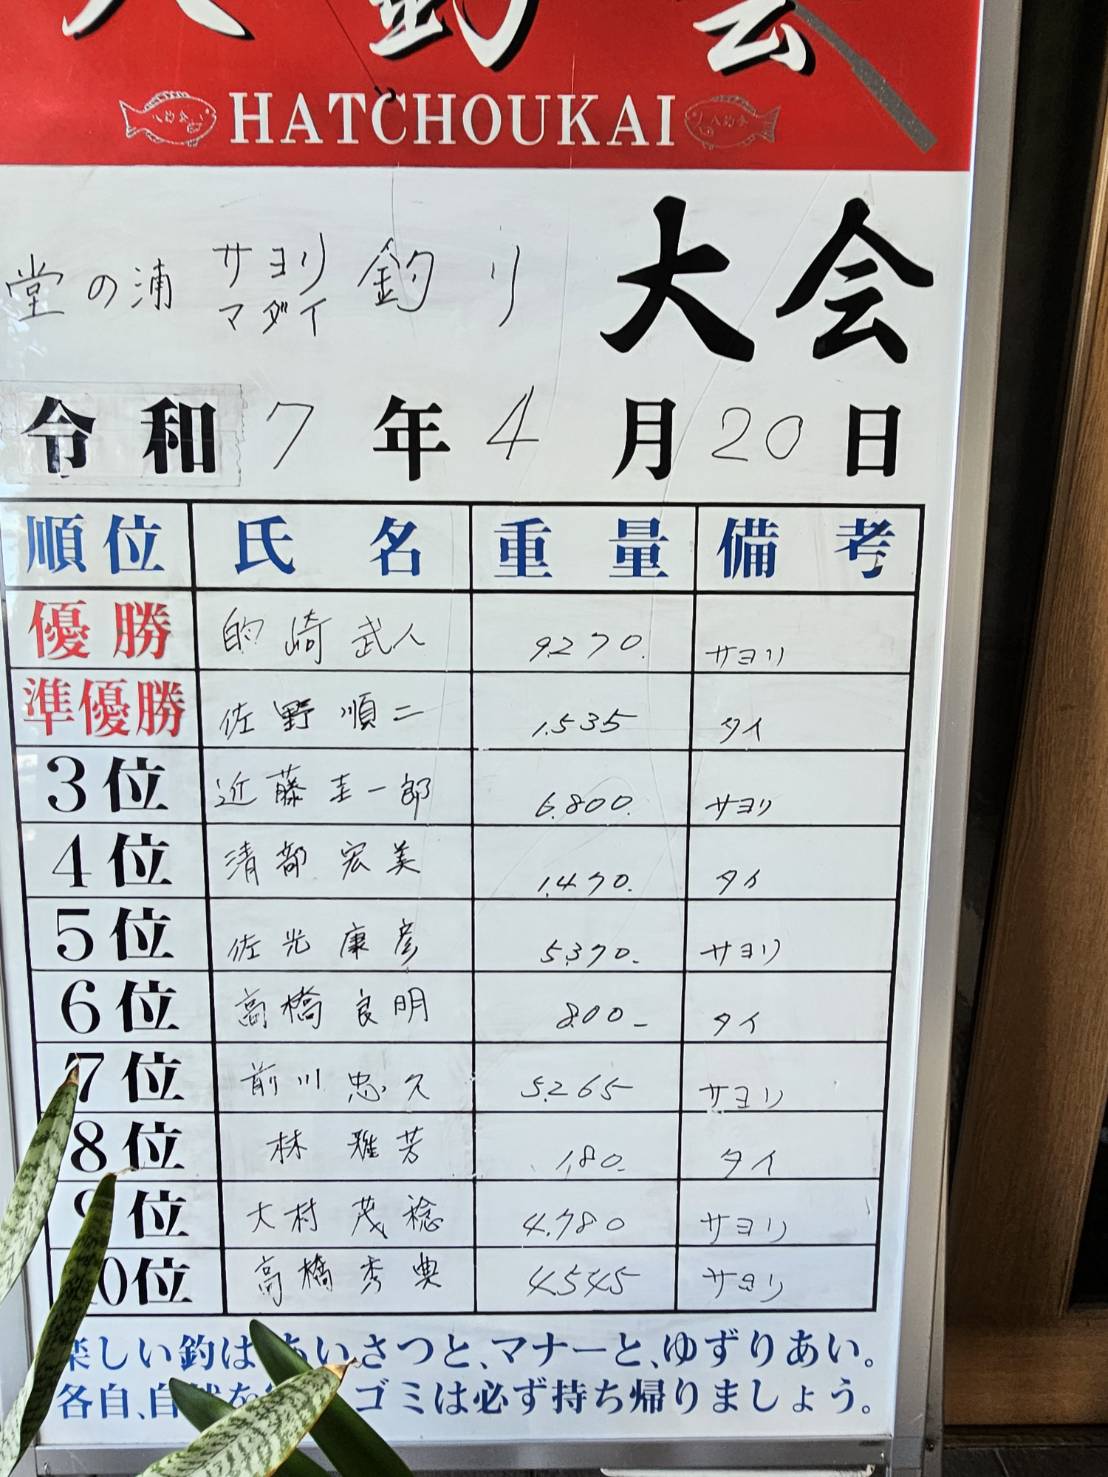 八釣会
HATCHOUKAI
堂の浦 サヨリ マダイ 釣り 大会
令和7年4月20日
順位 氏名 重量 備考
優勝 的崎武人 9.270. サヨリ
準優勝 佐野順二 1.535 タイ
3位 近藤圭一郎 6.800. サヨリ
4位 清都宏美 1.470. タイ
5位 佐光康彦 5.370. サヨリ
6位 高橋良明 800- タイ
7位 前川忠久 5.265 サヨリ
8位 林雅芳 180. タイ
9位 大村茂稔 4.780 サヨリ
10位 高橋秀典 4.545 サヨリ
楽しい釣は あいさつと、マナーと、ゆずりあい。
各自、自 ゴミは必ず持ち帰りましょう。